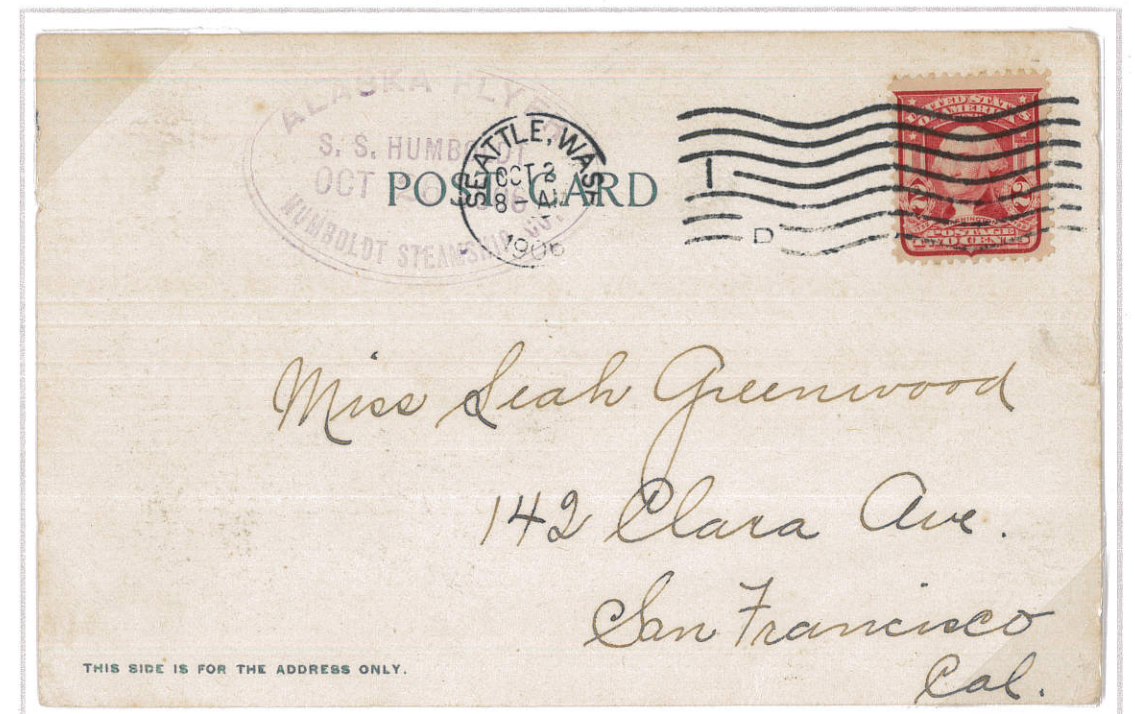 ALASKA FLYER
S. S. HUMBOLDT
OCT 1906
HUMBOLDT STEAMSHIP CO.
POST CARD
SEATTLE, WASH
OCT 2
8 - AM
1906
1
D
UNITED STATES
OF AMERICA
2 2
POSTAGE
TWO CENTS
Miss Leah Greenwood
142 Clara Ave.
San Francisco
Cal.
THIS SIDE IS FOR THE ADDRESS ONLY.